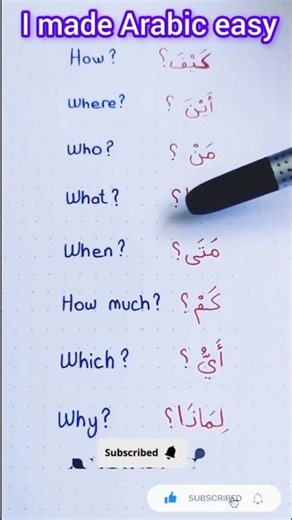 I made Arabic easy
How? كَيْفَ؟
Where? أَيْنَ ؟
Who? مَنْ ؟
What? ؟
When? مَتَى؟
How much? كَمْ؟
Which? أَيُّ ؟
Why? لِمَاذَا؟
Subscribed
SUBSCRIBED